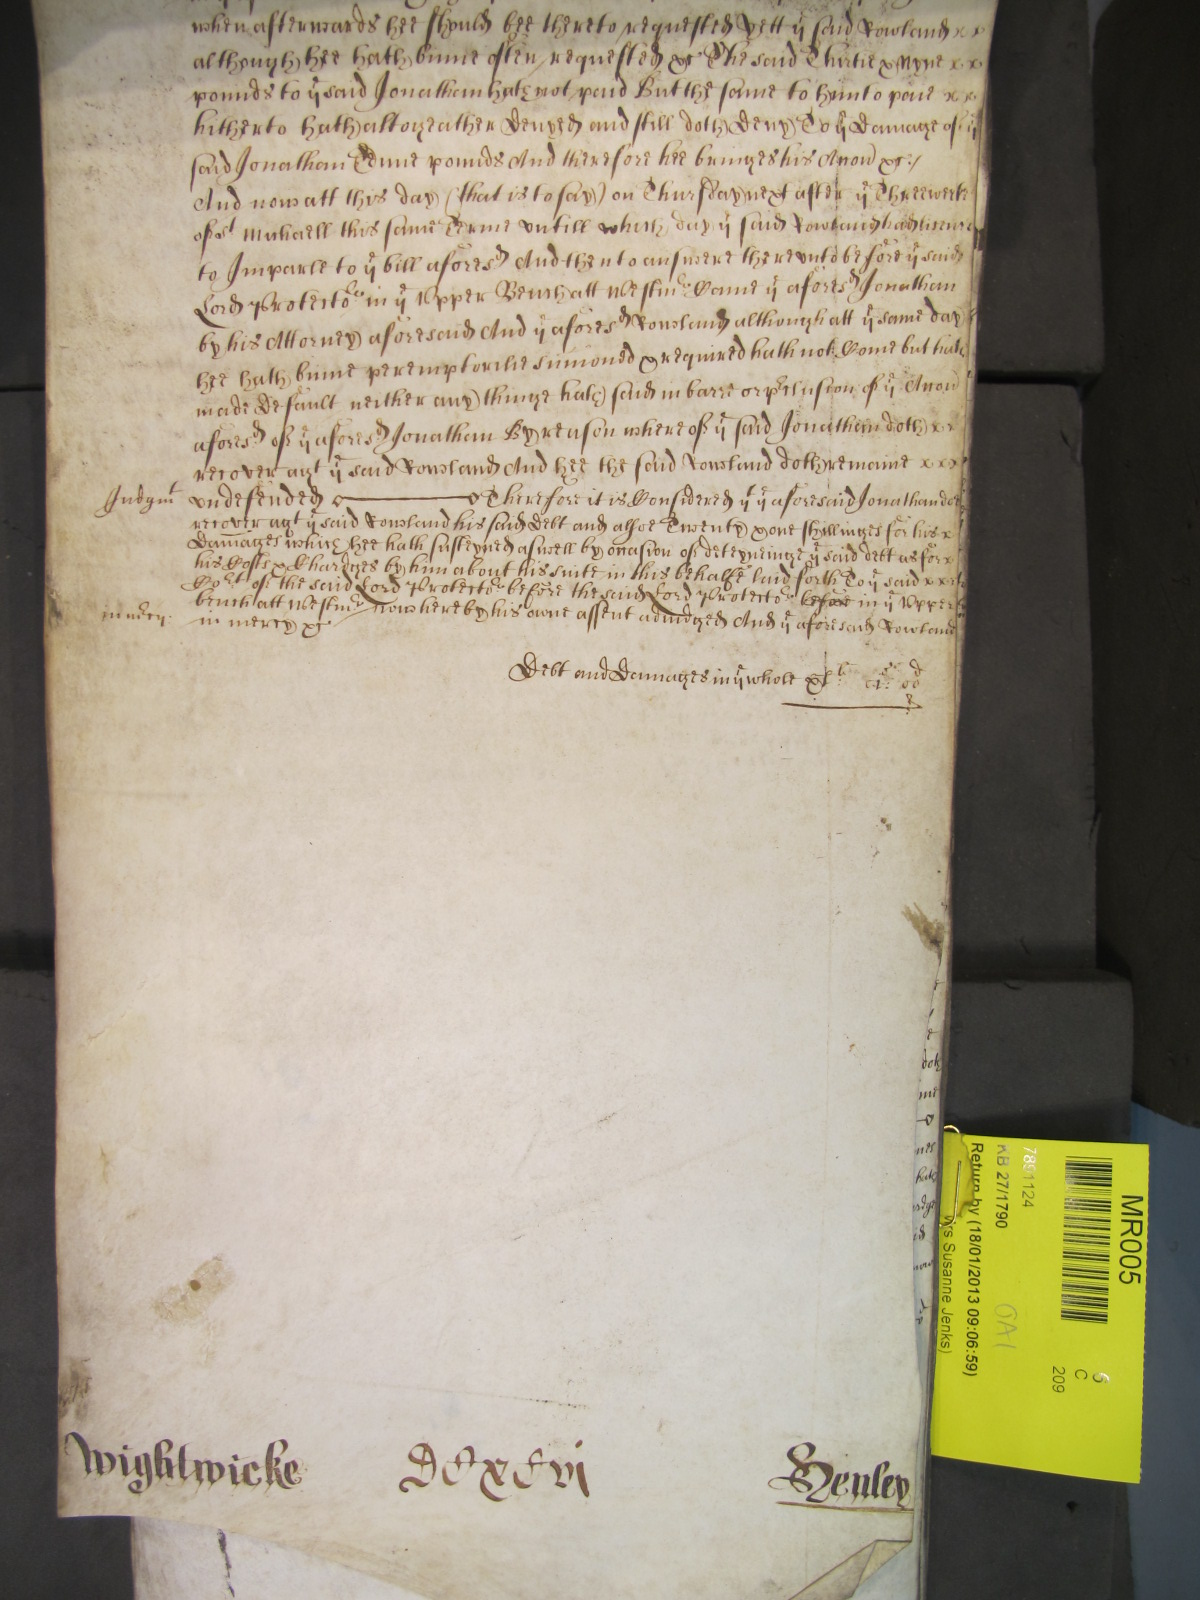 when afterwards hee should bee thereto requested Yett ye said Rowland x x
although hee hath binne often requested &c The said Thirtie & Nyne x x
pounds to ye said Jonathan hath not paid But the same to him to paie x x
hitherto hath altogeather denyed and still doth deny To ye Damage of ye
said Jonathan Tenne pounds And therefore hee bringes his Accon &c:/
And now att this day (that is to say) on Thursday next after ye Three weeks
of st Michaell this same Terme untill which day ye said Rowland had licence
to Imparle to ye bill aforesd And then to answere thereunto before ye said
Lord Protector in ye Upper Bench att Westmr Came ye aforesd Jonathan
by his Attorney aforesaid And ye aforesd Rowland although att ye same day
hee hath binne peremptorilie sumoned & required hath not Come but hath
made Default neither any thinge hath said in barre or pclusion of ye Accon
aforesd of ye aforesd Jonathan By reason whereof ye said Jonathan doth x x
recover agt ye said Rowland And hee the said Rowland doth remaine x x x
Judgmt
undefended Therefore it is Considered yt ye aforesaid Jonathan doe
recover agt ye said Rowland his said Debt and alsoe Twenty & one shillinges for his x
Damages which hee hath susteyned aswell by occasion of deteyneinge ye said debt as for x
his Costs & Chardges by him about his suite in this behalfe laid forth To ye said x x
Cort of the said Lord Protector before the said Lord Protector before in ye Upper
bench att Westmr now here by his owne assent adiudged And ye aforesaid Rowland
in mercy
in mercy &c
Debt and Damages in ye whole xl li js 00d
Wightwicke DCxCvi Henley
MR005
7891124
KB 27/1790
Return by (18/01/2013 09:06:59)
Mrs Susanne Jenks)
6
C
209